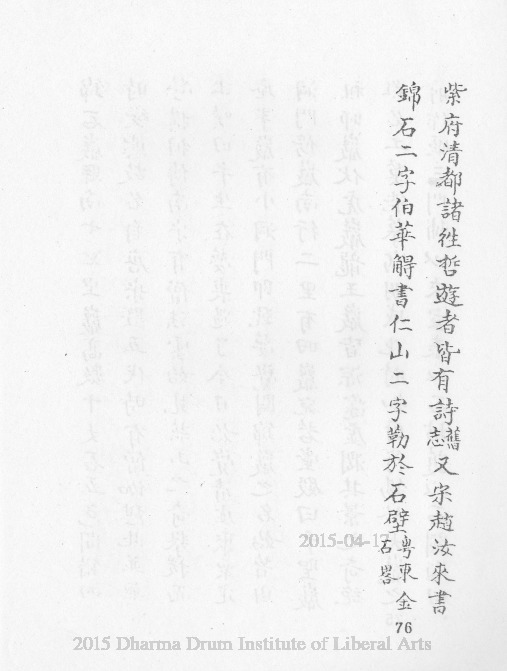 紫府清都諸徃哲遊者皆有詩舊志又宋趙汝來書
錦石二字伯華觧書仁山二字勒於石壁粤東金石畧
76
2015-04-17
2015 Dharma Drum Institute of Liberal Arts